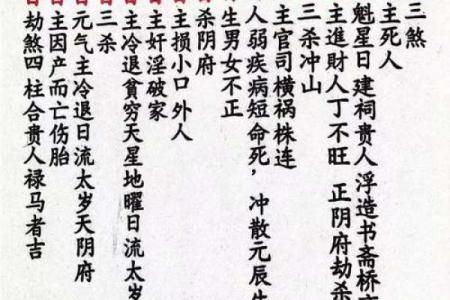 三煞
主死人
魁星日建祠贵人浮造书斋桥
主進财人丁不旺 正阴府劫杀
三杀冲山
主官司横祸株连
人弱疾病短命死，冲散元辰生
生男女不正
杀阴府
主损小口 外人
主奸淫破家
主冷退贫穷天星地曜日流太岁
三杀
元气主冷退日流太岁天阴府
主因产而亡伤胎
劫煞四柱合贵人禄马者吉